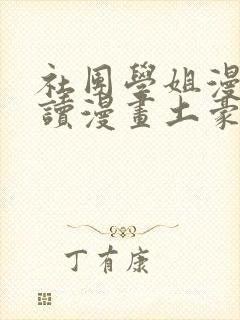 社團學姐漫
讀漫畫土豪
丁有康